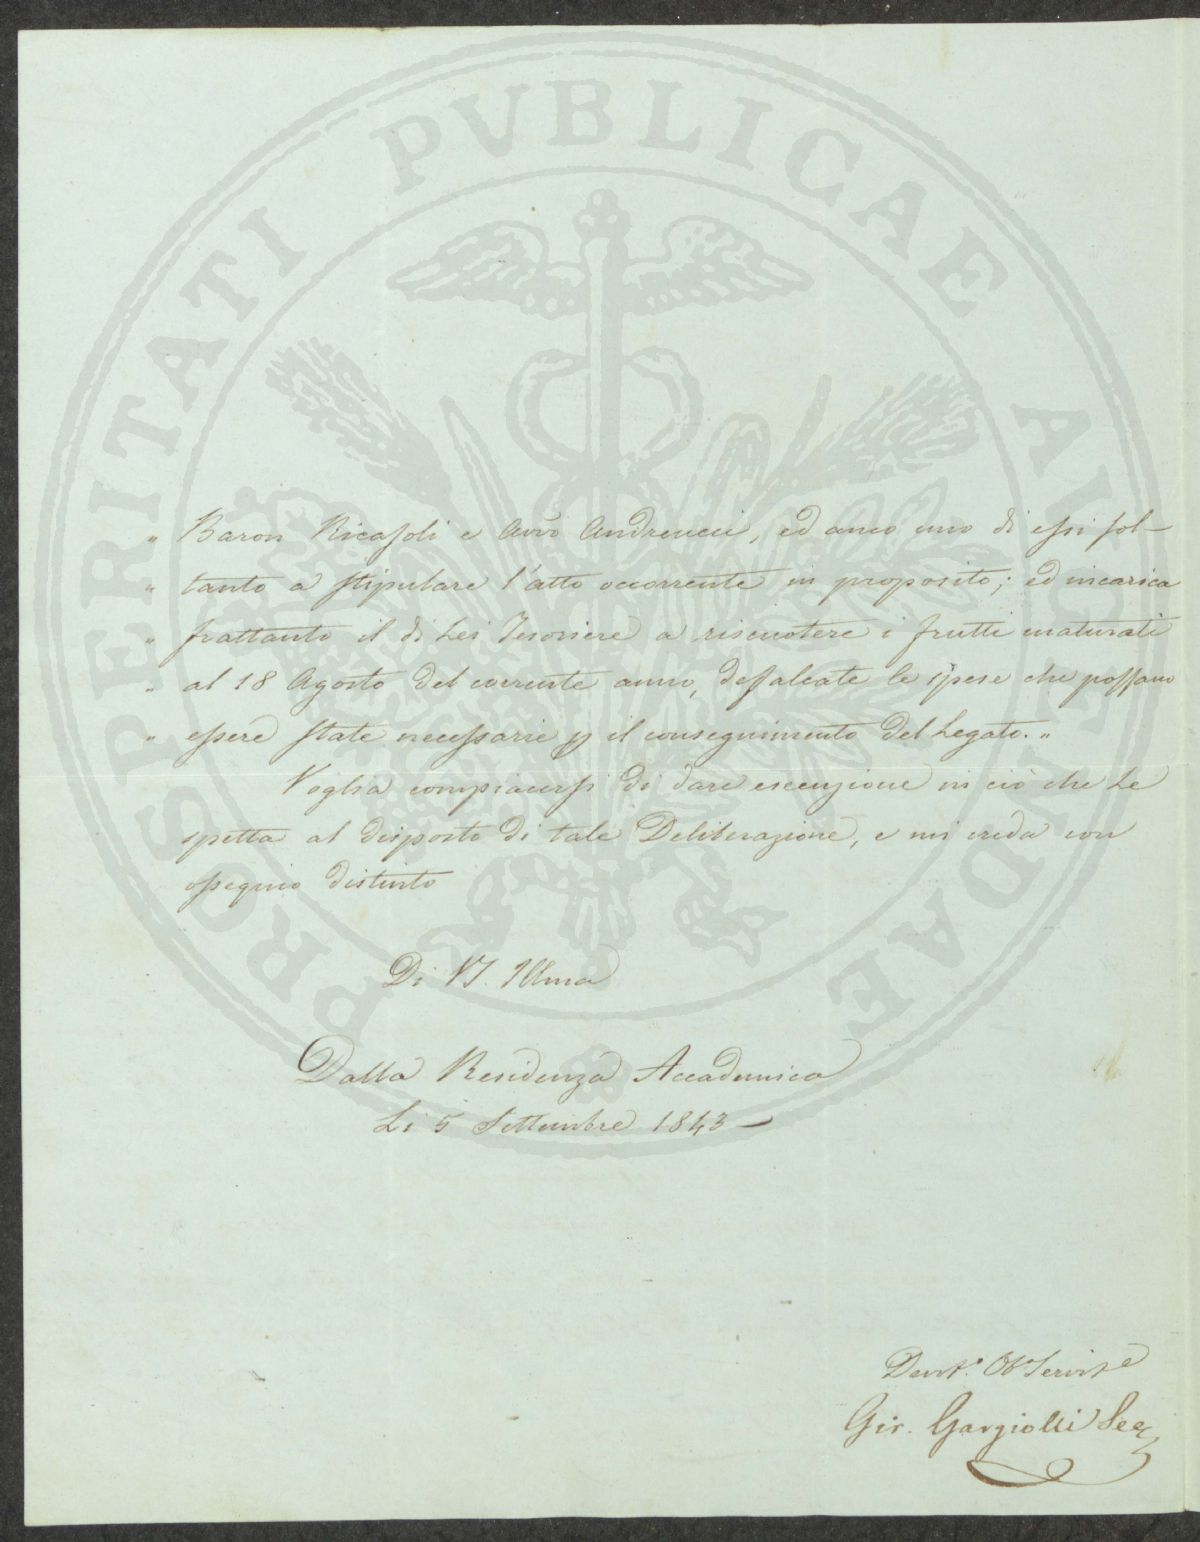 PROSPERITATI PUBLICAE AUGENDAE
„ Baron Ricasoli e Avvo Andreucci, ed anco uno di essi sol-
„ tanto a stipulare l'atto occorrente in proposito; ed incarica
„ frattanto il di Lei Tesoriere a riscuotere i frutti maturati
„ al 18 Agosto del corrente anno, defalcate le spese che possano
„ essere state necessarie p il conseguimento del Legato. „
Voglia compiacersi di dare esecuzione in ciò che Le
spetta al disposto di tale Deliberazione, e mi creda con
ossequio distinto
Di VS. Illma
Dalla Residenza Accademica
Li 5 Settembre 1843 –
Devt.º Ob Servit e
Gir. Gargiolli Seg